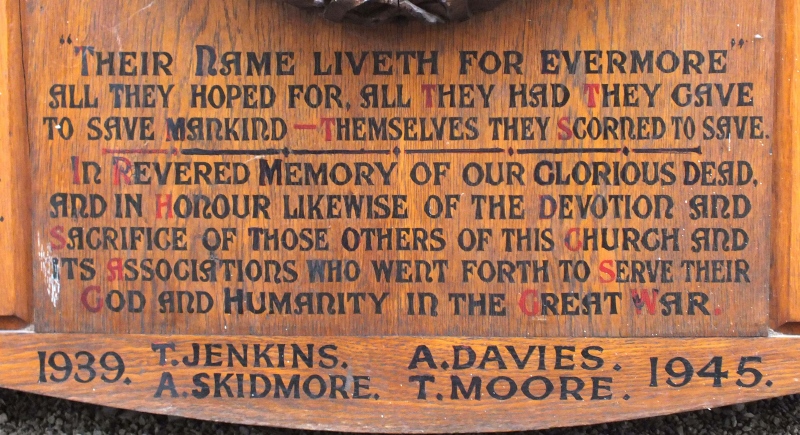 "THEIR NAME LIVETH FOR EVERMORE"
ALL THEY HOPED FOR, ALL THEY HAD THEY GAVE
TO SAVE MANKIND — THEMSELVES THEY SCORNED TO SAVE.
IN REVERED MEMORY OF OUR GLORIOUS DEAD,
AND IN HONOUR LIKEWISE OF THE DEVOTION AND
SACRIFICE OF THOSE OTHERS OF THIS CHURCH AND
ITS ASSOCIATIONS WHO WENT FORTH TO SERVE THEIR
GOD AND HUMANITY IN THE GREAT WAR.
1939. T. JENKINS. A. DAVIES. 1945.
A. SKIDMORE. T. MOORE.